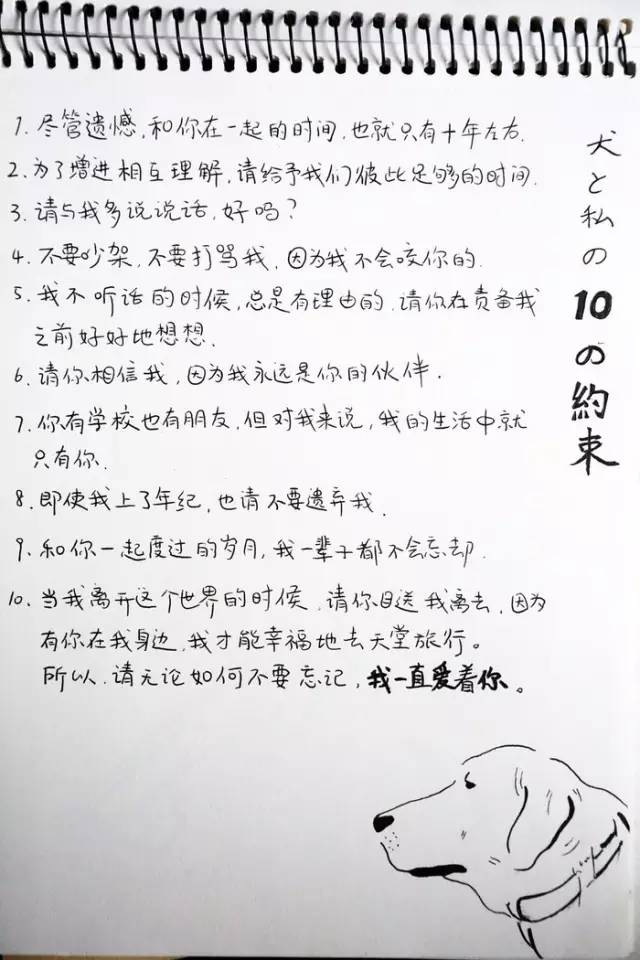 犬と私の10の約束
1. 尽管遗憾,和你在一起的时间,也就只有十年左右.
2. 为了增进相互理解,请给予我们彼此足够的时间.
3. 请与我多说说话,好吗?
4. 不要吵架,不要打骂我,因为我不会咬你的.
5. 我不听话的时候,总是有理由的.请你在责备我
之前好好地想想.
6. 请你相信我,因为我永远是你的伙伴.
7. 你有学校也有朋友,但对我来说,我的生活中就
只有你.
8. 即使我上了年纪,也请不要遗弃我.
9. 和你一起度过的岁月,我一辈子都不会忘却.
10. 当我离开这个世界的时候,请你目送我离去,因为
有你在我身边,我才能幸福地去天堂旅行。
所以,请无论如何不要忘记,我一直爱着你。